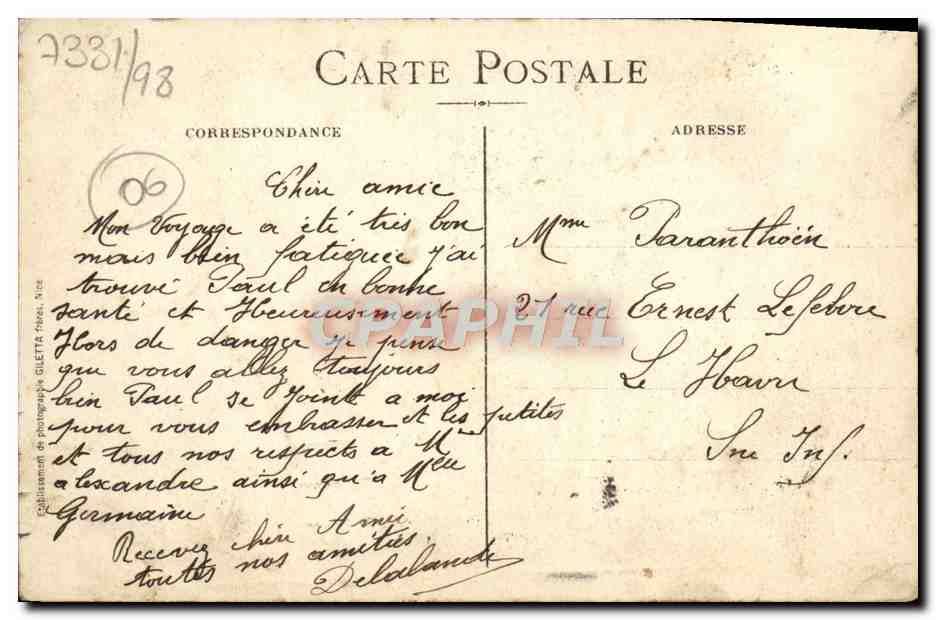 7331/98
CARTE POSTALE
CORRESPONDANCE
ADRESSE
06
Chère amie
Mon Voyage a été très bon
mais bien fatiguée j'ai
trouvé Paul en bonne
santé et Heureusement
Hors de danger je pense
que vous allez toujours
bien Paul se Joint a moi
pour vous embrasser et les petites
et tous nos respects a Mme
alexandre ainsi qu'a Melle
Germaine
Recevez chère Amie
toutes nos amitiés.
Delalande
Mme Paranthoën
27 rue Ernest Lefebvre
Le Havre
Sne Inf.
Etablissement de photographie GILETTA frères, Nice
CPAPHIL